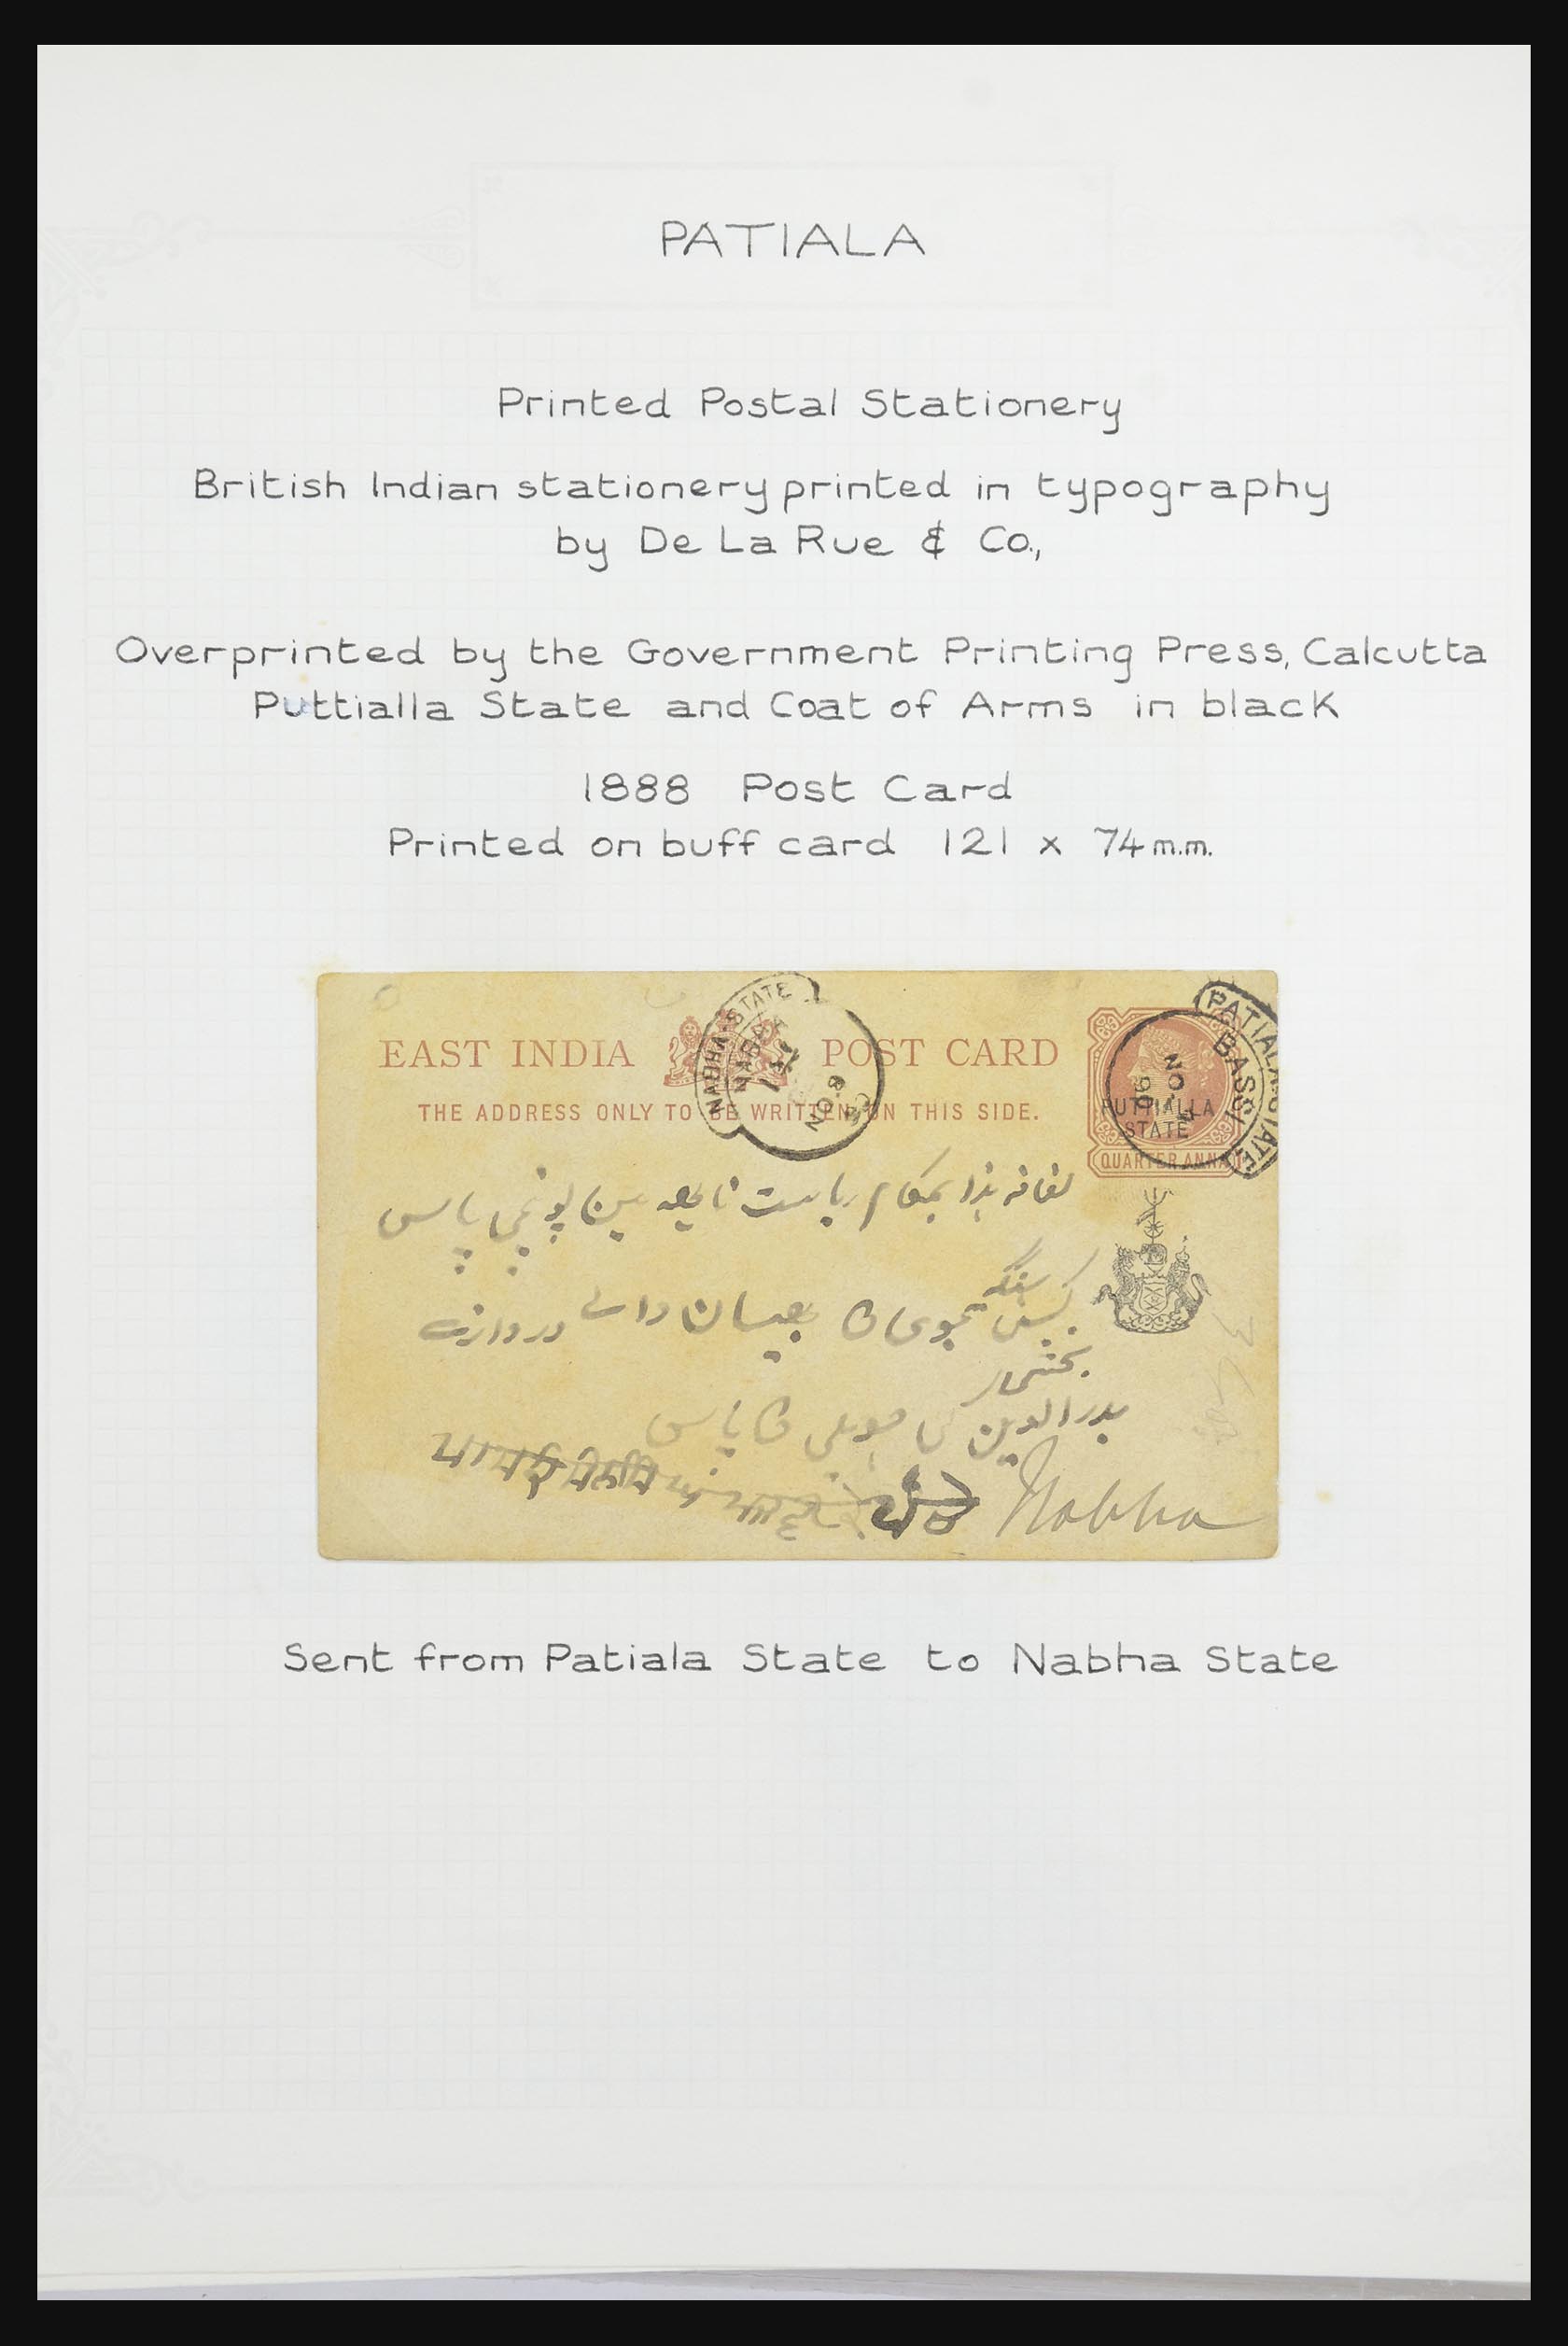 PATIALA
Printed Postal Stationery
British Indian stationery printed in typography
by De La Rue & Co.,
Overprinted by the Government Printing Press, Calcutta
Puttialla State and Coat of Arms in black
1888 Post Card
Printed on buff card 121 x 74 m.m.
EAST INDIA POST CARD
THE ADDRESS ONLY TO BE WRITTEN ON THIS SIDE.
NABHA-STATE
NABHA
NO
PATIALA-STATE
BASSI
NO
90
PUTTIALLA
STATE
QUARTER ANNA
لفافہ ہذا بمقام ریاست نابھہ میں پاس
سنگہ
دروازہ
بدرالدین کی حویلی پاس
Nabha
Sent from Patiala State to Nabha State